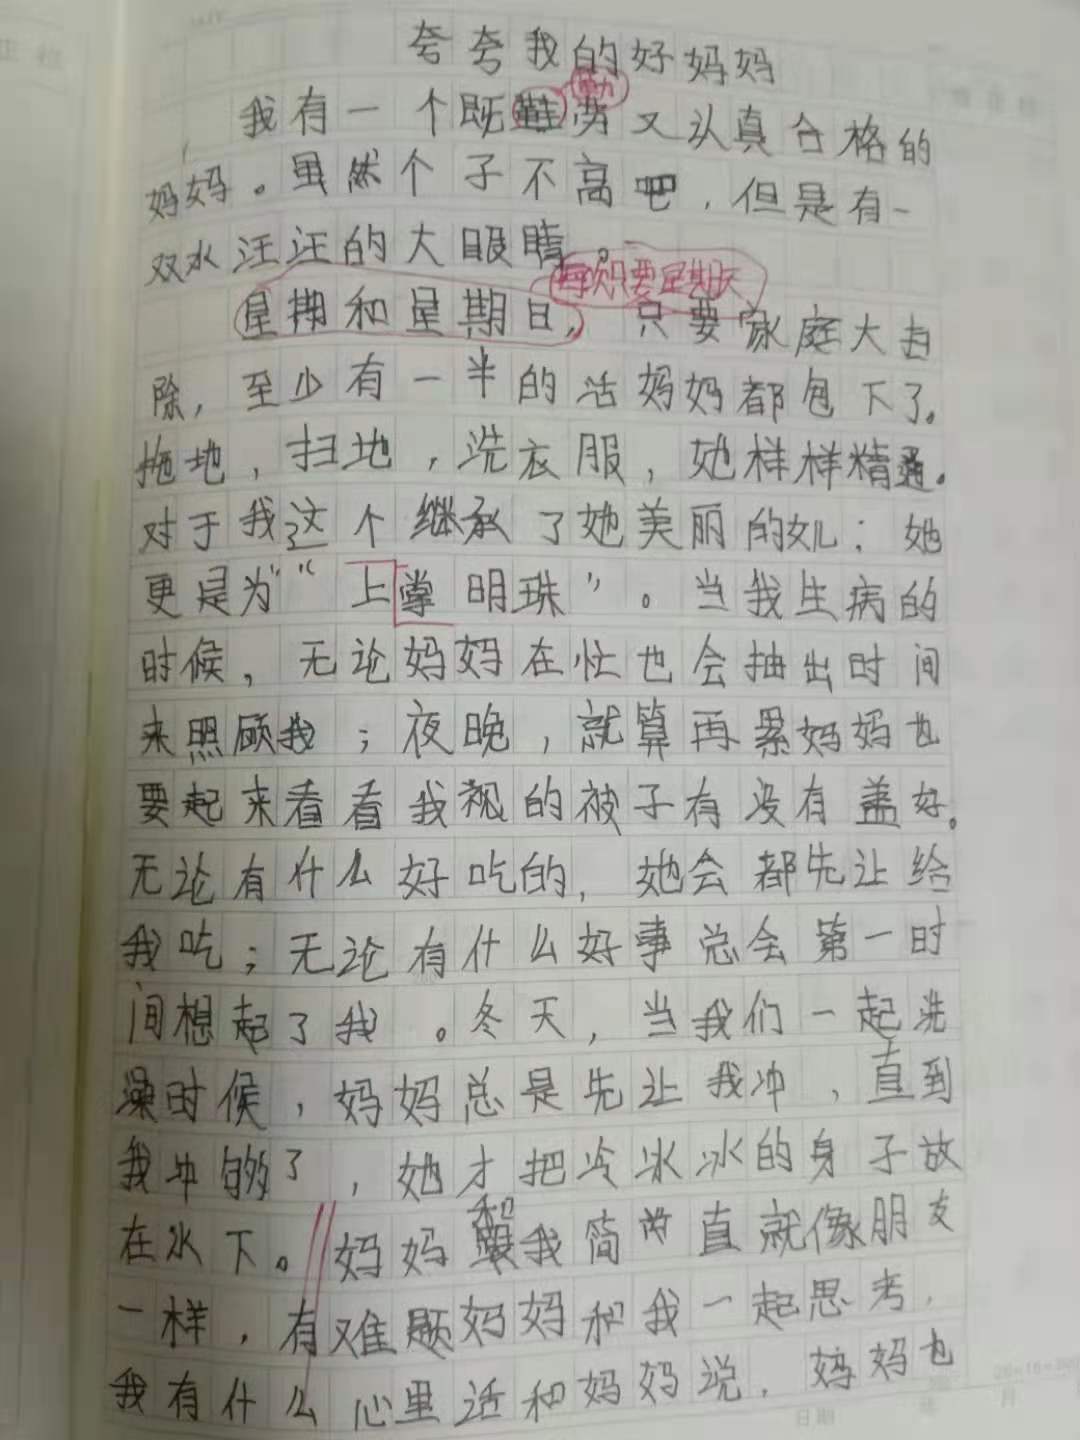 夸夸我的好妈妈
我有一个既勤劳又认真合格的
妈妈。虽然个子不高吧，但是有一
双水汪汪的大眼睛。
每次只要星期天
星期和星期日，只要家庭大扫
除，至少有一半的活妈妈都包下了。
拖地，扫地，洗衣服，她样样精通。
对于我这个继承了她美丽的女儿；她
更是为"“上掌明珠”。当我生病的
时候，无论妈妈在忙也会抽出时间
来照顾我；夜晚，就算再累妈妈也
要起来看看我的被子有没有盖好。
无论有什么好吃的，她会都先让给
我吃；无论有什么好事总会第一时
间想起了我。冬天，当我们一起洗
澡时候，妈妈总是先让我冲，直到
我冲够了，她才把冷冰冰的身子放
在水下。妈妈和我简直就像朋友
一样，有难题妈妈和我一起思考，
我有什么心里话和妈妈说，妈妈也
日期 年 月